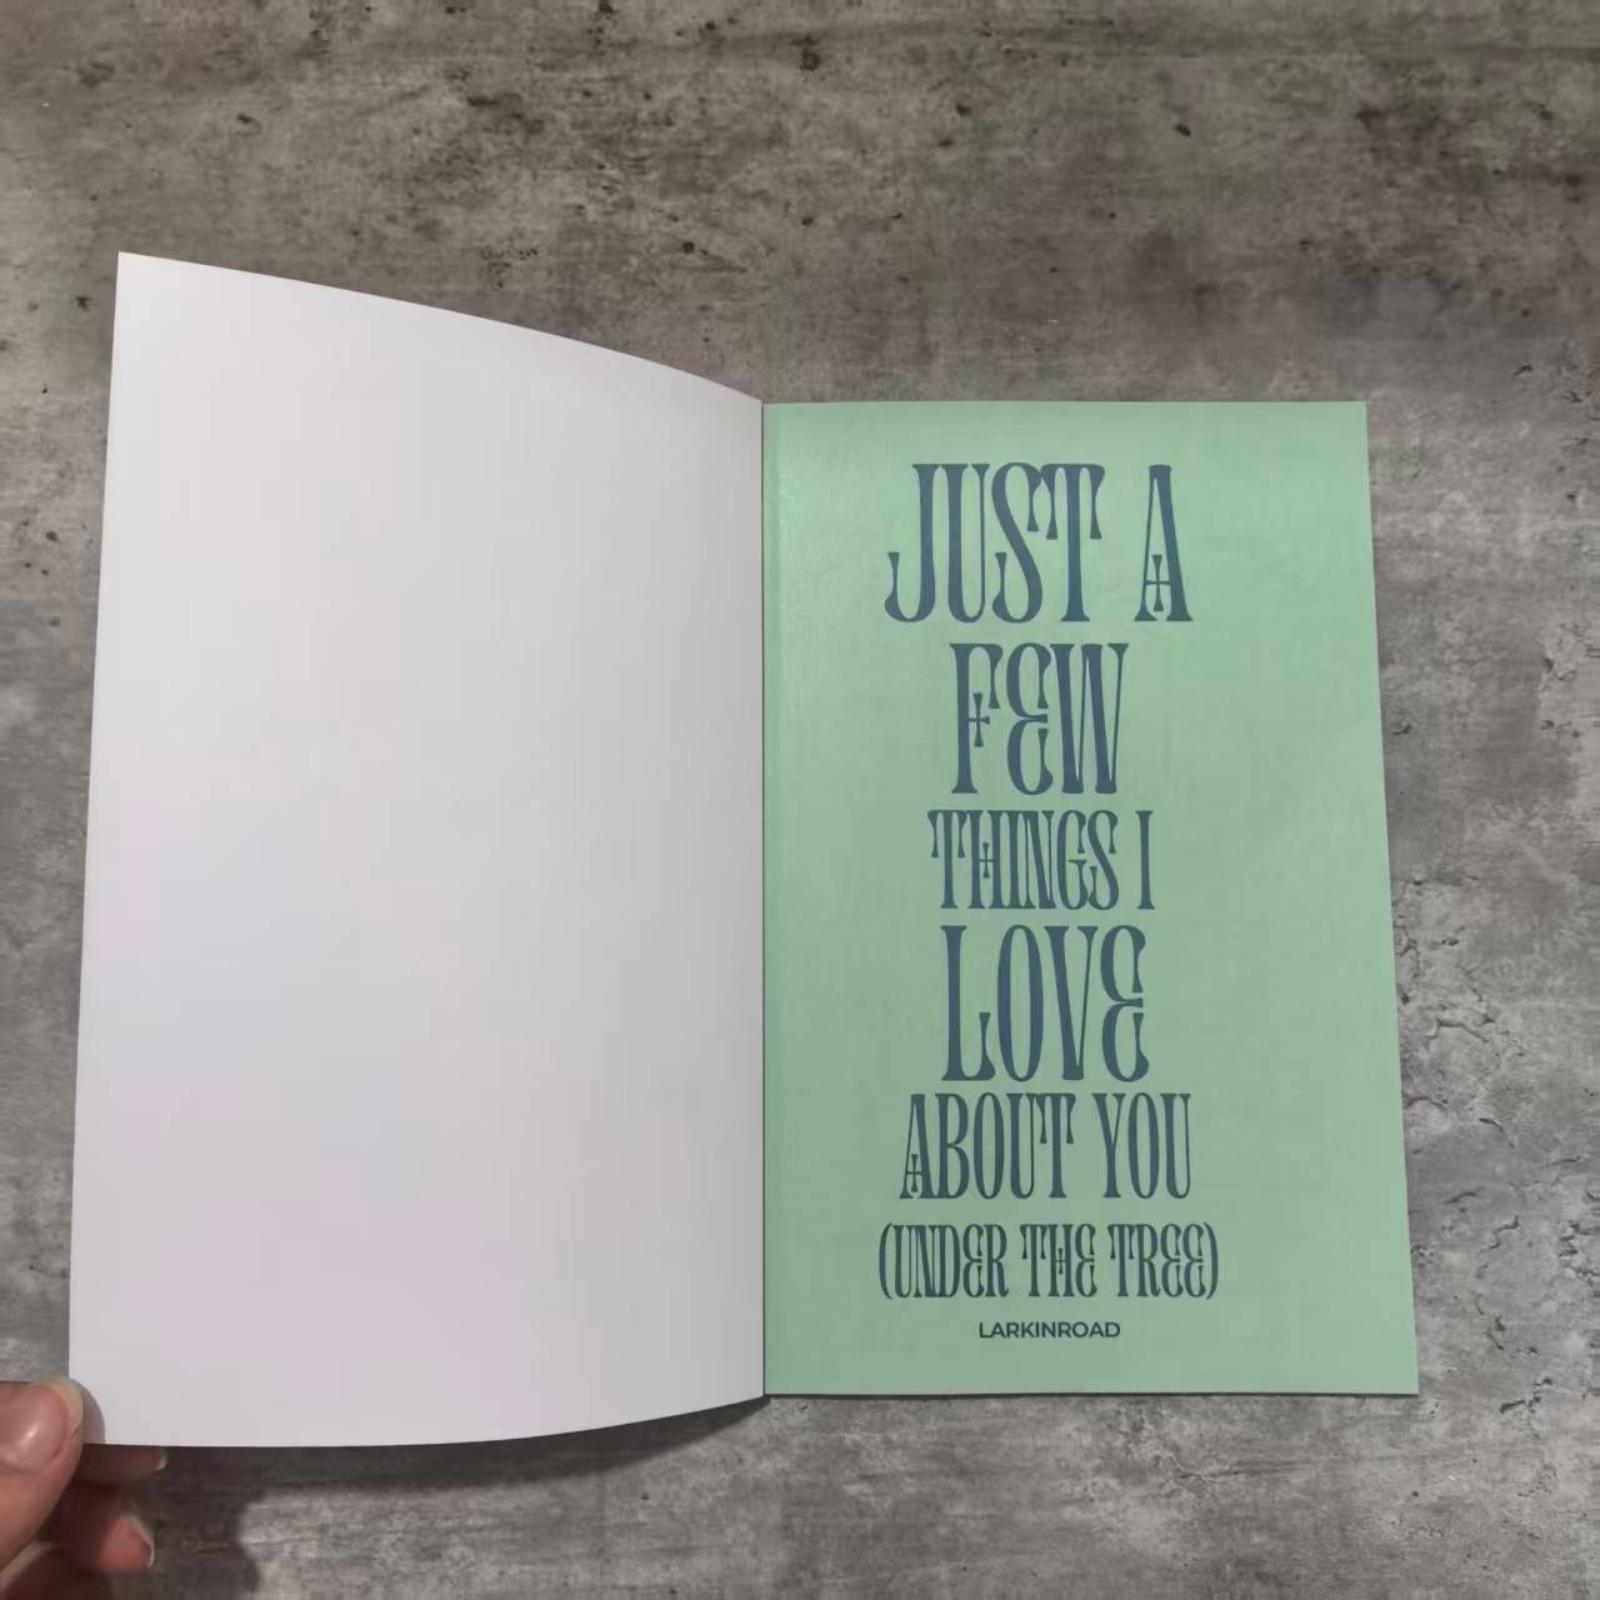 JUST A
FEW
THINGS I
LOVE
ABOUT YOU
(UNDER THE TREE)
LARKINROAD